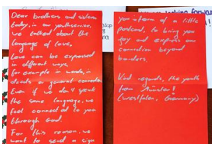 Dear brothers and sisters
today, in our youthservice,
we talked about the
language of love.
Love can be expressed
in different ways,
for example in words,
deeds or generous
Even if we don't speak
the same language, we
feel connected to you
through God.
For this reason we
want to send a sign
you - from of a little
postcard, to bring you
joy and express our
connection beyond
borders.
Kind regards, the youth
from
(Westfalen, Germany)
looking forward